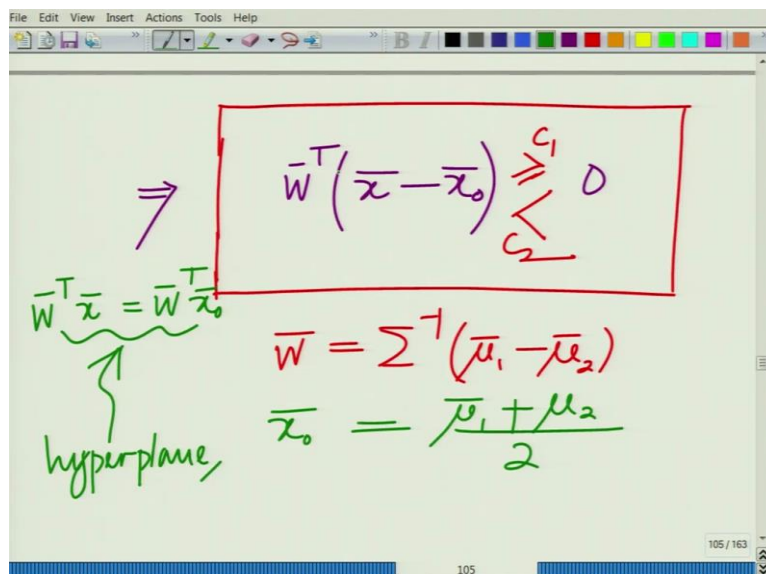 File Edit View Insert Actions Tools Help
B I
⇒ w̄ᵀ(x̄ − x̄₀) ≥ C₁ < C₂ 0
w̄ᵀx̄ = w̄ᵀx̄₀
hyperplane,
w̄ = Σ⁻¹(μ̄₁ − μ̄₂)
x̄₀ = μ̄₁ + μ₂ / 2
105 / 163
105